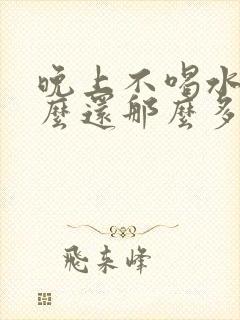 晚上不喝水
麼還那麼多
飛来峰